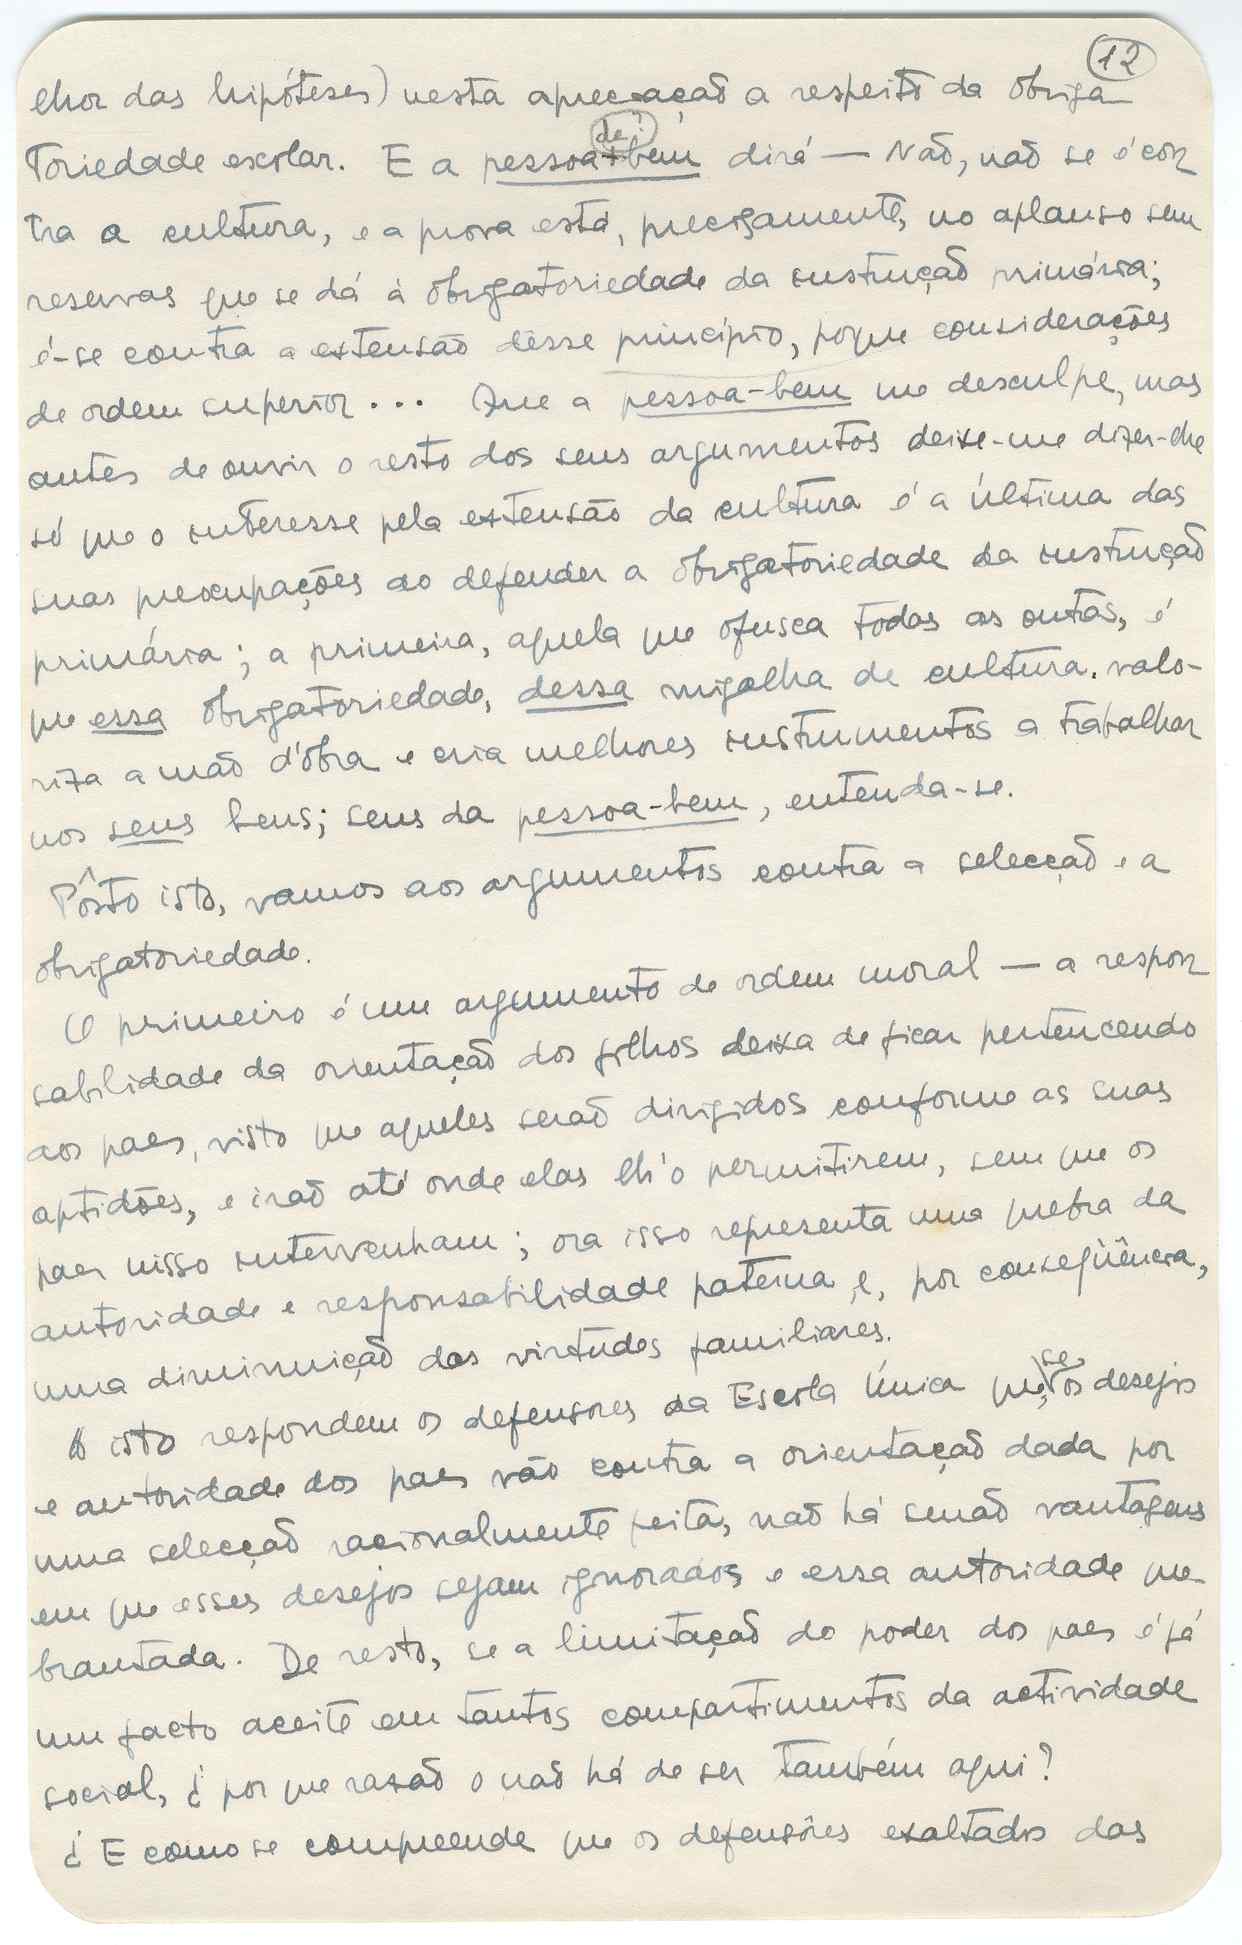 12
lhor das hipóteses) nesta apreciação a respeito da obriga-
de?
toriedade escolar. E a pessoa-bem dirá — Não, não se é con
tra a cultura, e a prova está, precisamente, no aplauso sem
reservas que se dá à obrigatoriedade da instrução primária;
é-se contra a extensão dêsse princípio, porque considerações
de ordem superior... Que a pessoa-bem me desculpe, mas
antes de ouvir o resto dos seus argumentos deixe-me dizer-lhe
só que o interesse pela extensão da cultura é a última das
suas preocupações ao defender a obrigatoriedade da instrução
primária; a primeira, aquela que ofusca todas as outras, é
que essa obrigatoriedade, dessa migalha de cultura, valo-
riza a mão d'obra e cria melhores instrumentos a trabalhar
nos seus bens; seus da pessoa-bem, entenda-se.
Pôsto isto, vamos aos argumentos contra a selecção e a
obrigatoriedade.
O primeiro é um argumento de ordem moral — a respon
sabilidade da orientação dos filhos deixa de ficar pertencendo
aos paes, visto que aqueles serão dirigidos conforme as suas
aptidões, e irão até onde elas lh'o permitirem, sem que os
paes nisso intervenham; ora isso representa uma quebra da
autoridade e responsabilidade paterna e, por conseqüência,
uma diminuição das virtudes familiares.
A isto respondem os defensores da Escola Única que, se os desejos
e autoridade dos paes vão contra a orientação dada por
uma selecção racionalmente feita, não há senão vantagens
em que esses desejos sejam ignorados e essa autoridade que-
brantada. De resto, se a limitação do poder dos paes é já
um facto aceite em tantos compartimentos da actividade
social, ¿ por que razão o não há de ser também aqui?
¿ E como se compreende que os defensôres exaltados das